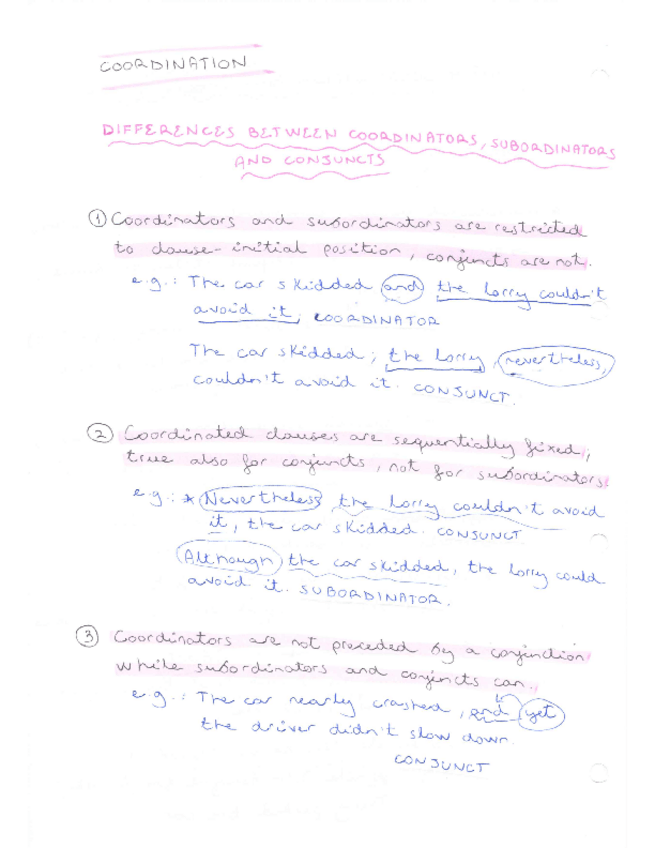 COORDINATION
DIFFERENCES BETWEEN COORDINATORS, SUBORDINATORS
AND CONJUNCTS
① Coordinators and subordinators are restricted
to clause-initial position, conjuncts are not.
e.g.: The car skidded and the lorry couldn't
avoid it, COORDINATOR
The car skidded; the lorry, nevertheless,
couldn't avoid it. CONJUNCT.
② Coordinated clauses are sequentially fixed,
true also for conjuncts, not for subordinators.
e.g.: * Nevertheless the lorry couldn't avoid
it, the car skidded. CONJUNCT
Although the car skidded, the lorry could
avoid it. SUBORDINATOR.
③ Coordinators are not preceded by a conjunction
while subordinators and conjuncts can.
e.g.: The car nearly crashed, and yet
the driver didn't slow down.
CONJUNCT